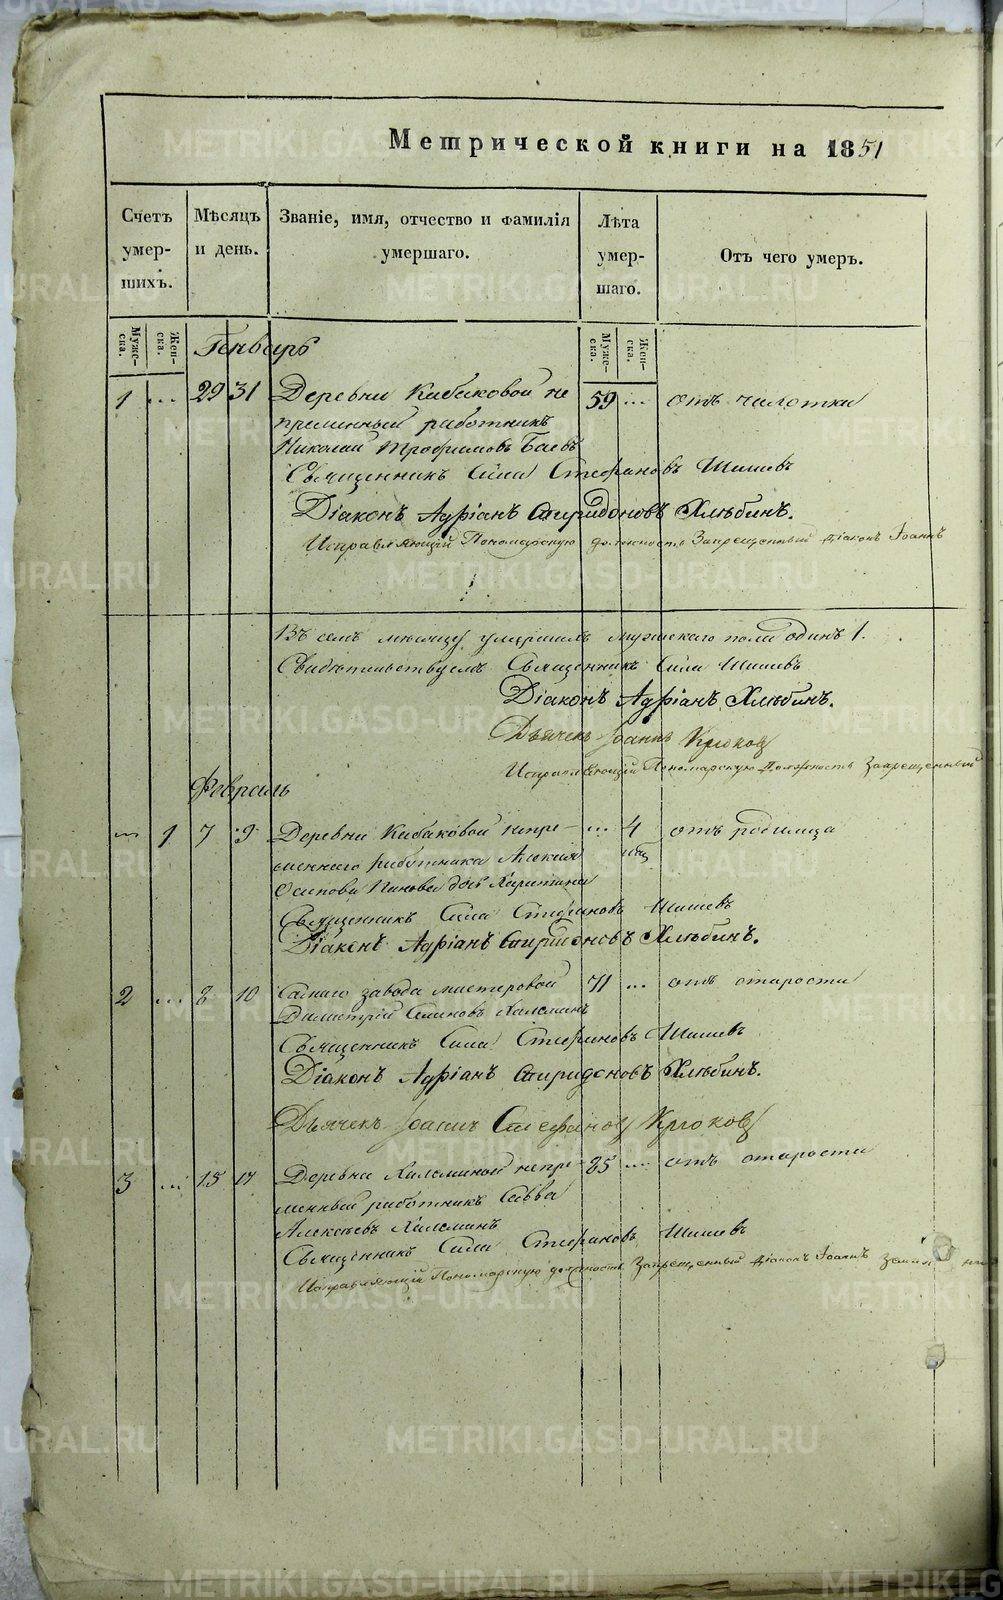 Метрической книги на 1851
Счетъ умер- шихъ.
Мѣсяцъ и день.
Званіе, имя, отчество и фамилія умершаго.
Лѣта умер- шаго.
Отъ чего умеръ.
Муже- ска.
Жен- ска.
Муже- ска.
Жен- ска.
Генварь
1 ... 29 31 Деревни Кабаковой не 59 ... отъ чахотки
пременный работникъ
Николай Трофимовъ Баевъ
Священникъ Сила Стефановъ Шишевъ
Діаконъ Адріанъ Спиридоновъ Хлѣбинъ.
Исправляющій Пономарскую должность Запрещенный діаконъ Іоаннъ
Въ семъ мѣсяцѣ умершихъ мужскаго пола одинъ 1.
Свидѣтельствуемъ Священникъ Сила Шишевъ
Діаконъ Адріанъ Хлѣбинъ.
Дьячекъ Іоаннъ Крюковъ
Исправляющій Пономарскую Должность Запрещенный
Февраль
... 1 7 9 Деревни Кабаковой непре- ... 4 отъ родимца
меннаго работника Алексія
Осипова дочь Харитина
Священникъ Сила Стефановъ Шишевъ
Діаконъ Адріанъ Спиридоновъ Хлѣбинъ.
2 ... 8 10 завода мастеровой 71 ... отъ старости
Димитрій
Священникъ Сила Стефановъ Шишевъ
Діаконъ Адріанъ Спиридоновъ Хлѣбинъ.
Дьячекъ Іоаннъ Стефановъ Крюковъ
3 ... 15 17 Деревни непре- 85 ... отъ старости
менный работникъ Савва
Алексѣевъ
Священникъ Сила Стефановъ Шишевъ
Исправляющій Пономарскую должность Запрещенный діаконъ Іоаннъ
METRIKI.GASO-URAL.RU